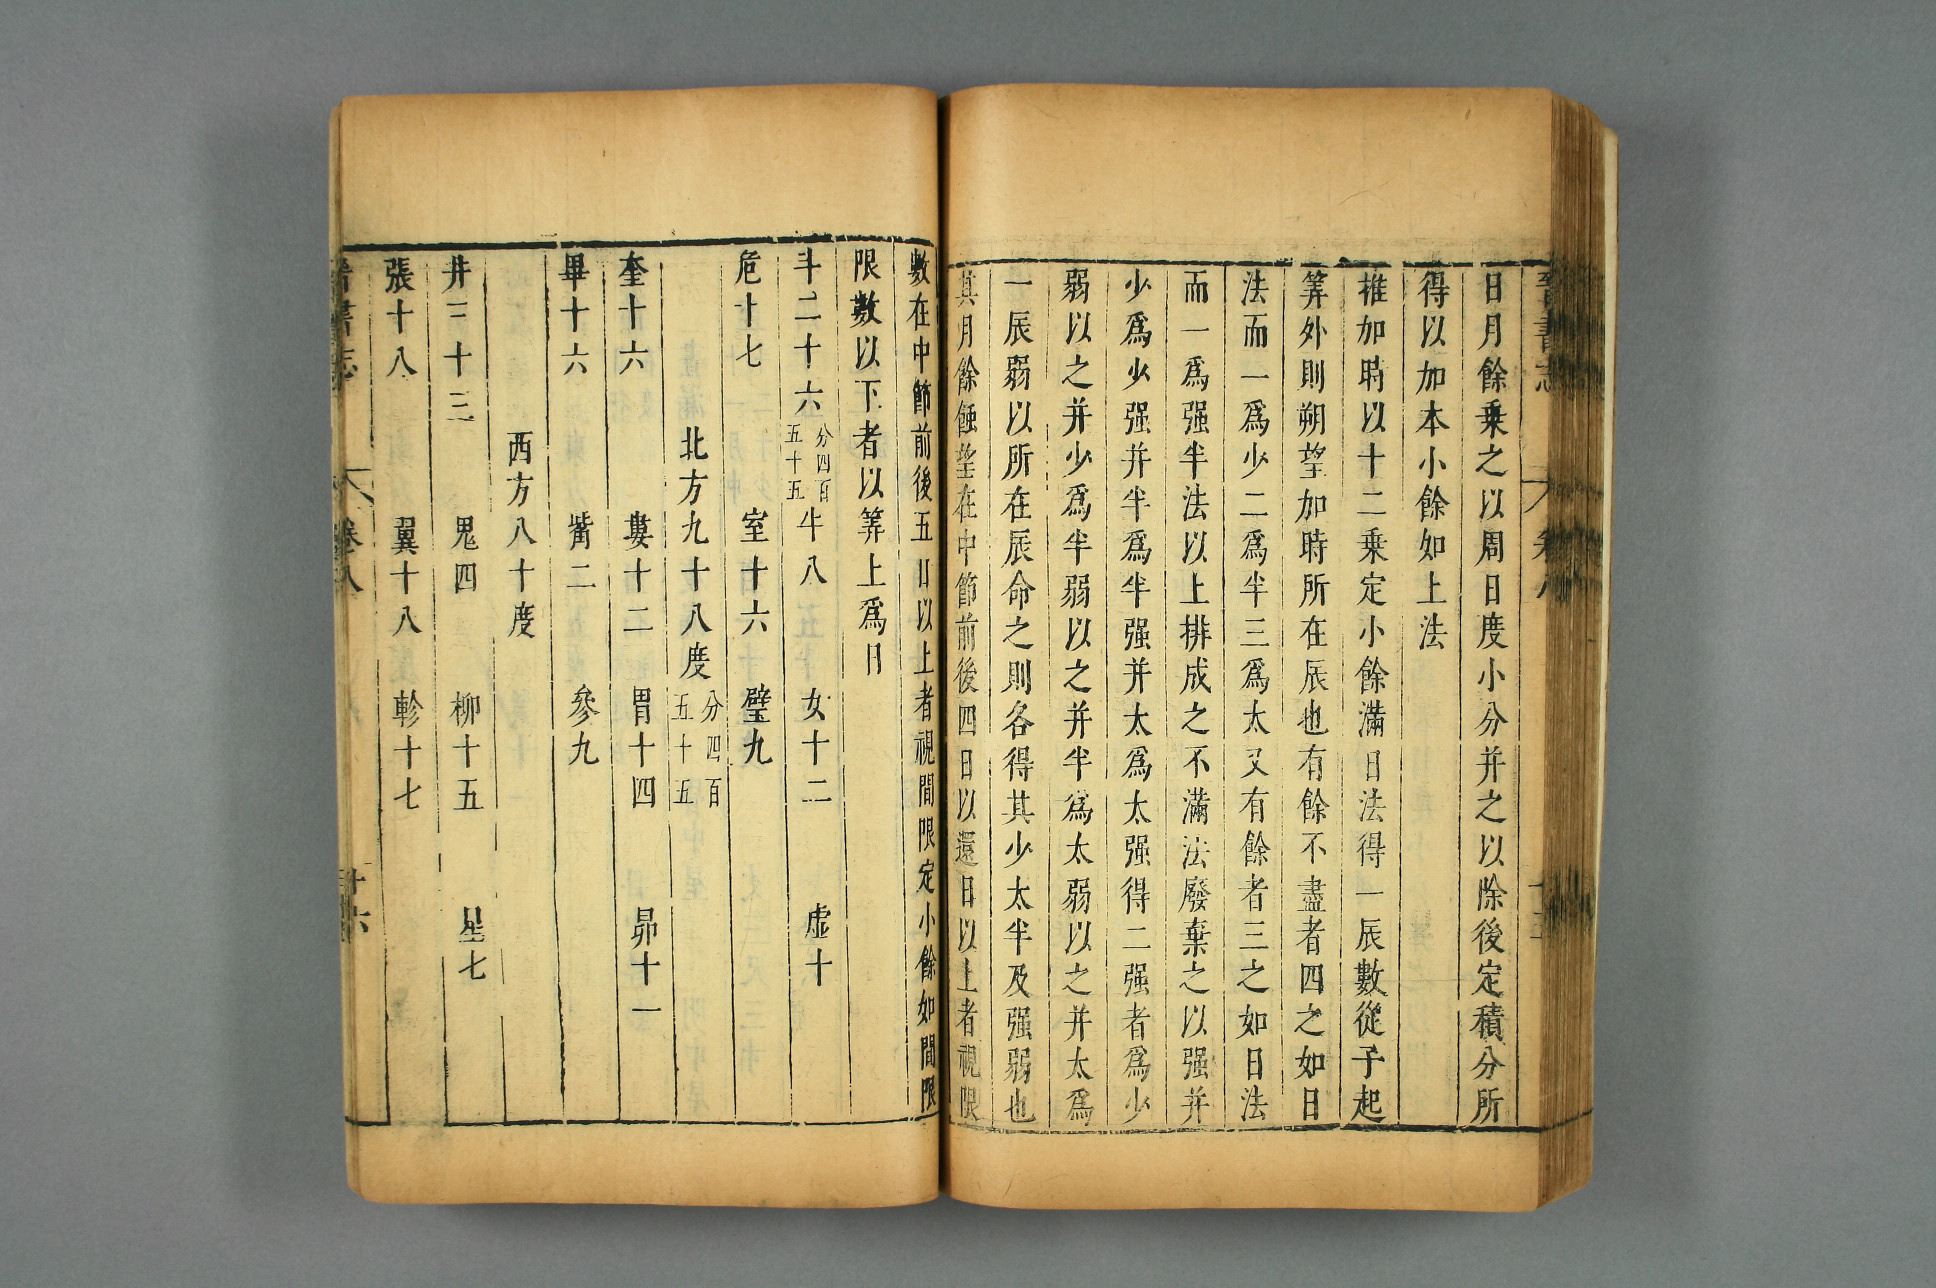 晉書志 卷八
日月餘乘之以周日度小分并之以除後定積分所
得以加本小餘如上法
推加時以十二乘定小餘滿日法得一辰數從子起
筭外則朔望加時所在辰也有餘不盡者四之如日
法而一爲少二爲半三爲太又有餘者三之如日法
而一爲强半法以上排成之不滿法廢棄之以强并
少爲少强并半爲半强并太爲太强得二强者爲少
弱以之并少爲半弱以之并半爲太弱以之并太爲
一辰弱以所在辰命之則各得其少太半及强弱也
其月餘蝕望在中節前後四日以還日以上者視限
數在中節前後五日以上者視間限定小餘如間限
限數以下者以筭上爲日
斗二十六分四百五十五 牛八 女十二 虛十
危十七 室十六 壁九
北方九十八度分四百五十五
奎十六 婁十二 胃十四 昴十一
畢十六 觜二 參九
西方八十度
井三十三 鬼四 柳十五 星七
張十八 翼十八 軫十七
晉書志 卷八 十六